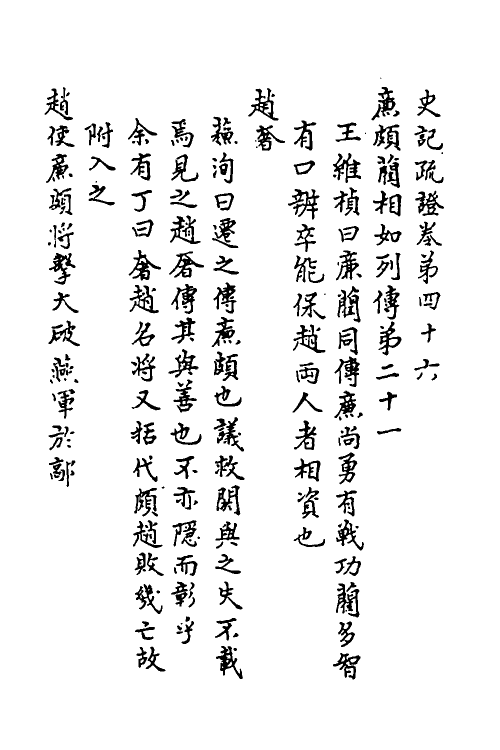 史記疏證卷第四十六
廉頗藺相如列傳第二十一
王維楨曰廉藺同傳廉尚勇有戰功藺多智
有口辨卒能保趙兩人者相資也
趙奢
蘇洵曰遷之傳廉頗也議救閼與之失不載
焉見之趙奢傳其與善也不亦隱而彰乎
余有丁曰奢趙名將又括代頗趙敗幾亡故
附入之
趙使廉頗將擊大破燕軍於鄗